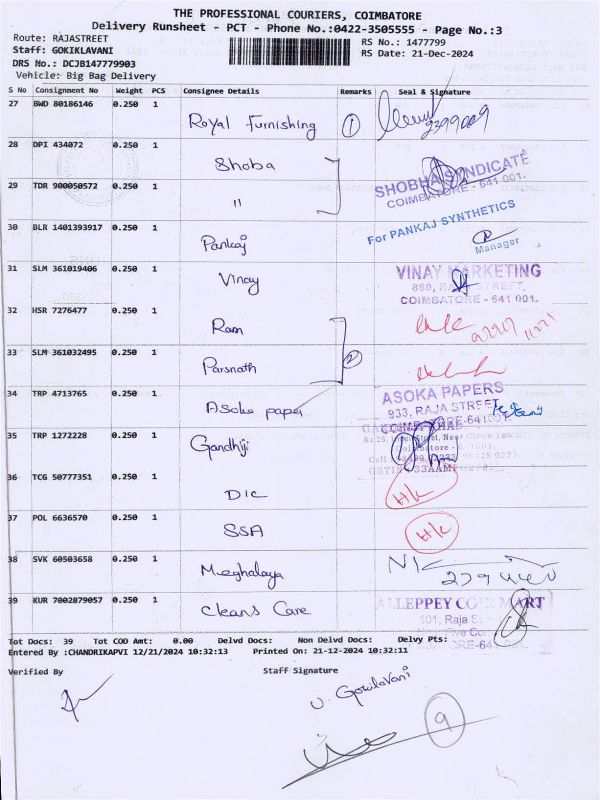 THE PROFESSIONAL COURIERS, COIMBATORE
Delivery Runsheet - PCT - Phone No.:0422-3505555 - Page No.:3
Route: RAJASTREET
RS No.: 1477799
Staff: GOKIKLAVANI
RS Date: 21-Dec-2024
DRS No.: DCJB147779903
Vehicle: Big Bag Delivery
S No Consignment No Weight PCS Consignee Details Remarks Seal & Signature
27 BWD 80186146 0.250 1 Royal Furnishing 1
28 DPI 434072 0.250 1 Shoba
SHOBHA SYNDICATE
COIMBATORE - 641 001.
29 TDR 900050572 0.250 1 "
30 BLR 1401393917 0.250 1 Pankaj
For PANKAJ SYNTHETICS
Manager
31 SLM 361019406 0.250 1 Vinay
VINAY MARKETING
COIMBATORE - 641 001.
32 HSR 7276477 0.250 1 Ram
33 SLM 361032495 0.250 1 Parsnath 2
34 TRP 4713765 0.250 1 Asoka paper
ASOKA PAPERS
933, RAJA STREET
35 TRP 1272228 0.250 1 Gandhiji
36 TCG 50777351 0.250 1 DIC H/K
37 POL 6636570 0.250 1 SSA H/K
38 SVK 60503658 0.250 1 Meghalaya
39 KUR 7002879057 0.250 1 Cleans Care
ALLEPPEY COIR MART
101, Raja
Tot Docs: 39 Tot COD Amt: 0.00 Delvd Docs: Non Delvd Docs: Delvy Pts:
Entered By :CHANDRIKAPVI 12/21/2024 10:32:13 Printed On: 21-12-2024 10:32:11
Verified By Staff Signature
U. Gokilavani
9